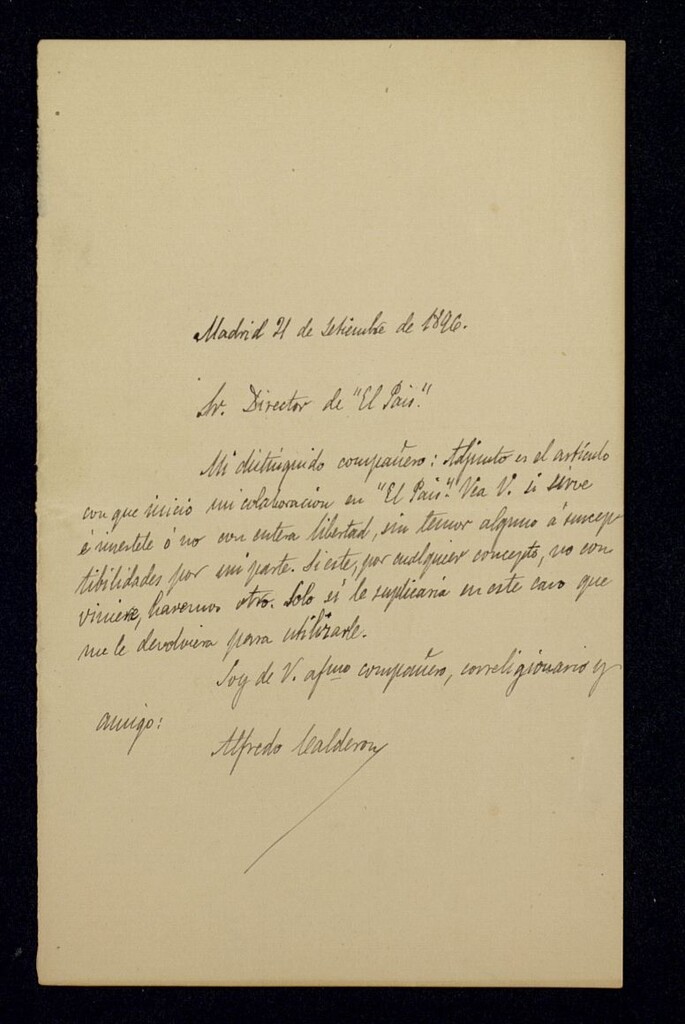 Madrid 21 de Setiembre de 1896.
Sr. Director de "El Pais."
Mi distinguido compañero: Adjunto es el artículo
con que inicio mi colaboración en "El Pais." Vea V. si sirve
é insertele ó no con entera libertad, sin temor alguno á suscep
tibilidades por mi parte. Si este, por cualquier concepto, no con
viniere, haremos otro. Solo sí le suplicaria en este caso que
me le devolviera para utilizarle.
Soy de V. afmo compañero, correligionario y
amigo:
Alfredo Calderon